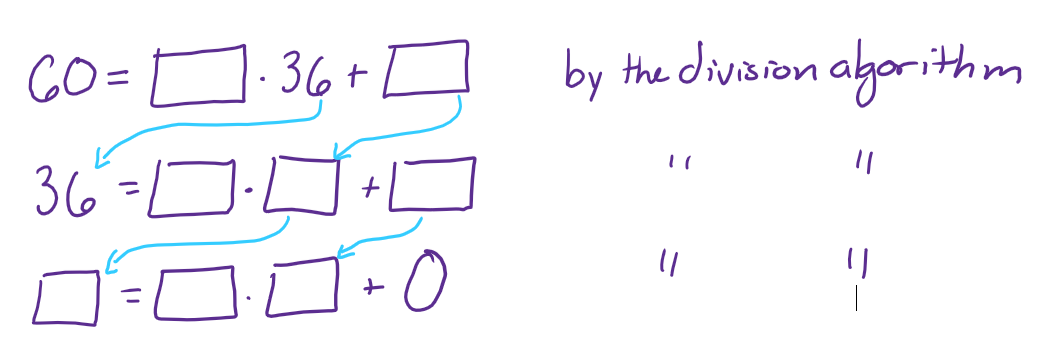 60 = □ · 36 + □ by the division algorithm
36 = □ · □ + □ " "
□ = □ · □ + 0 " "